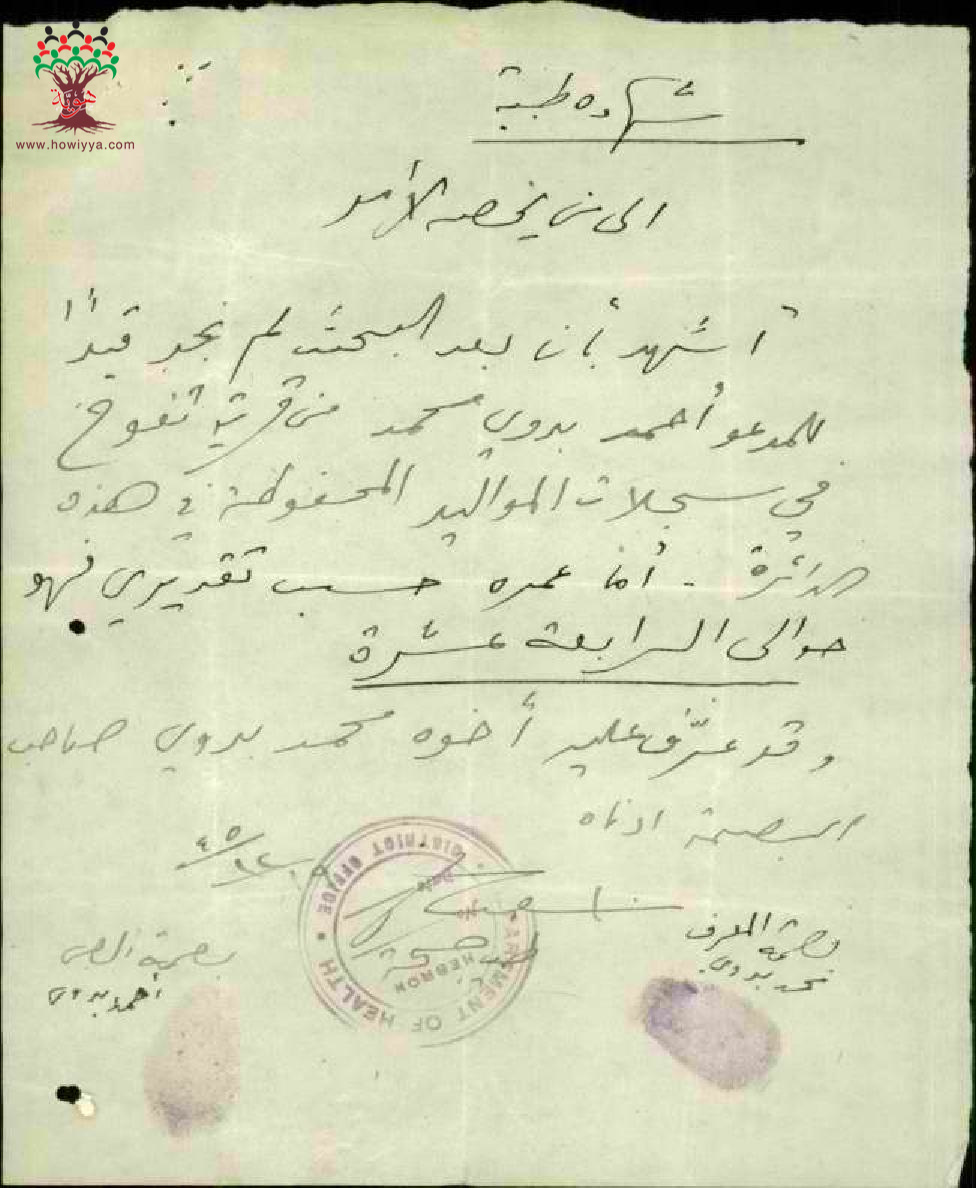 هوية
www.howiyya.com
شهاده طبية
الى من يخصه الأمر
أشهد بأن بعد البحث لم نجد قيداً
للمدعو أحمد بدوي محمد من قرية تفوح
في سجلات المواليد المحفوظة في هذه
الدائرة . أما عمره حسب تقديري فهو
حوالى الرابعة عشرة
وقد عرّف عليه أخوه محمد بدوي صاحب
البصمة ادناه
DEPARTMENT OF HEALTH • DISTRICT OFFICE •
HEBRON
Date
بصمة المعرف
محمد بدوي
بصمة
أحمد بدوي